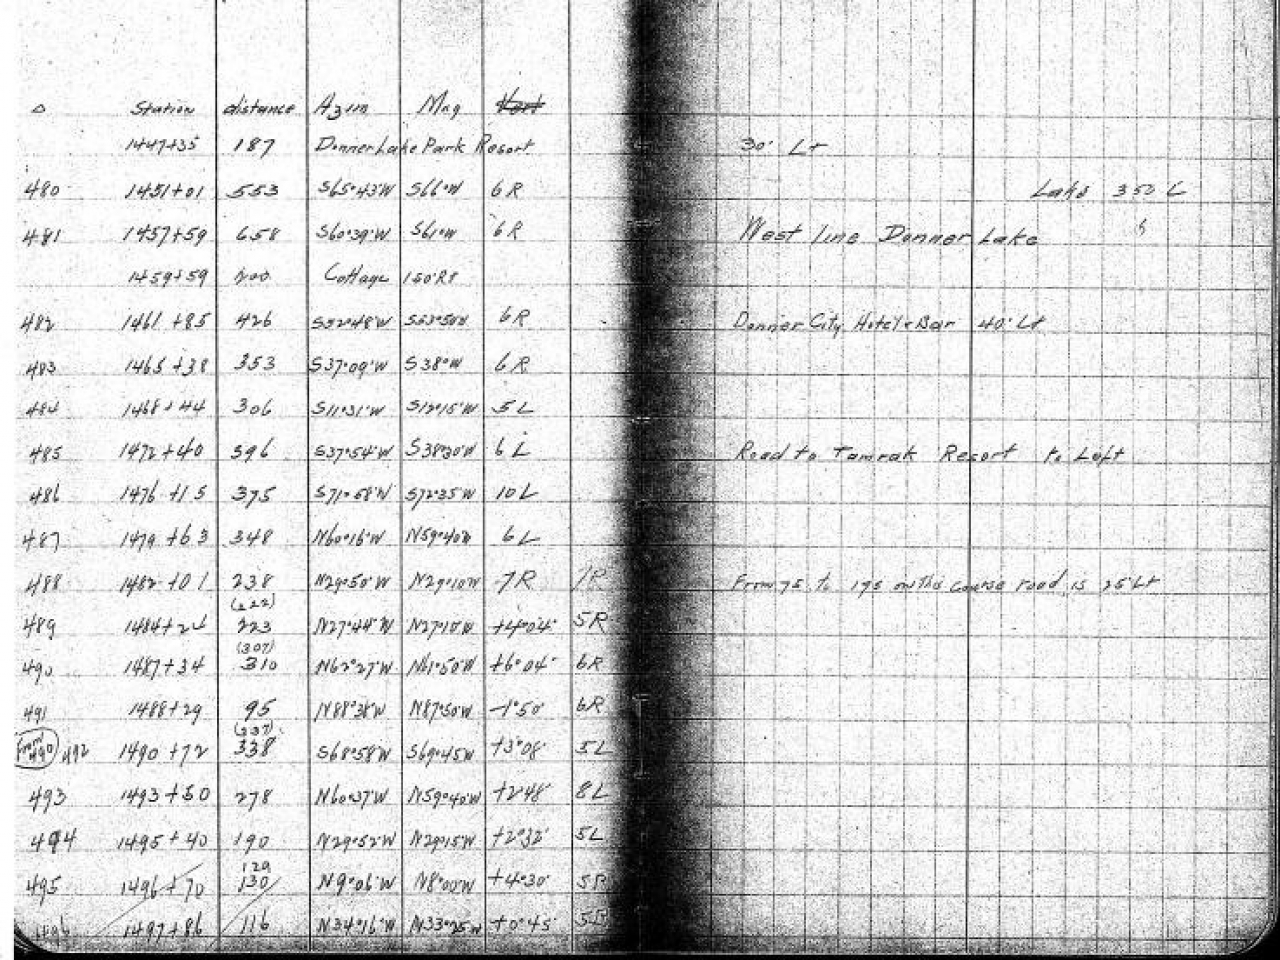 △ Station distance Azim Mag Vert
1447+35 187 Donner Lake Park Resort 30' Lt
480 1451+01 553 S65°43'W S66°W 6R Lake 350 L
481 1457+59 658 S60°39'W S61°W 6R West line Donner Lake
1459+59 200 Cottage 150'Rt
482 1461+85 426 S52°48'W S53°50'W 6R Donner City Hotel & Bar 40' Lt
483 1465+38 353 S37°09'W S38°W 6R
484 1468+44 306 S11°31'W S12°15'W 5L
485 1472+40 396 S37°54'W S38°30'W 6L Road to Tamrak Resort to Left
486 1476+15 375 S71°58'W S72°35'W 10L
487 1479+63 348 N60°16'W N59°40'W 6L
488 1482+01 238 N29°50'W N29°10'W 7R 7R From 75 to 175 on this course road is 25' Lt
(222)
489 1484+24 223 N27°44'W N27°10'W +4°04' 5R
(307)
490 1487+34 310 N62°27'W N61°50'W +6°04' 6R
491 1488+29 95 N88°38'W N87°50'W -1°50' 6R
(337)
From 490 492 1490+72 338 S68°58'W S69°45'W +3°08' 5L
493 1493+50 278 N60°37'W N59°40'W +2°48' 8L
494 1495+40 190 N29°52'W N29°15'W +2°32' 5L
129
495 1496+70 130 N9°06'W N8°00'W +4°30' 5R
496 1497+86 116 N34°16'W N33°25'W +0°45' 5R